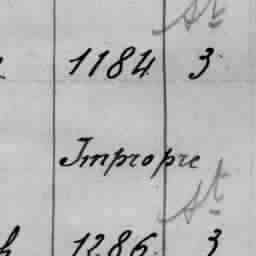 St
1184 3
Impropre
St
h 1286 3